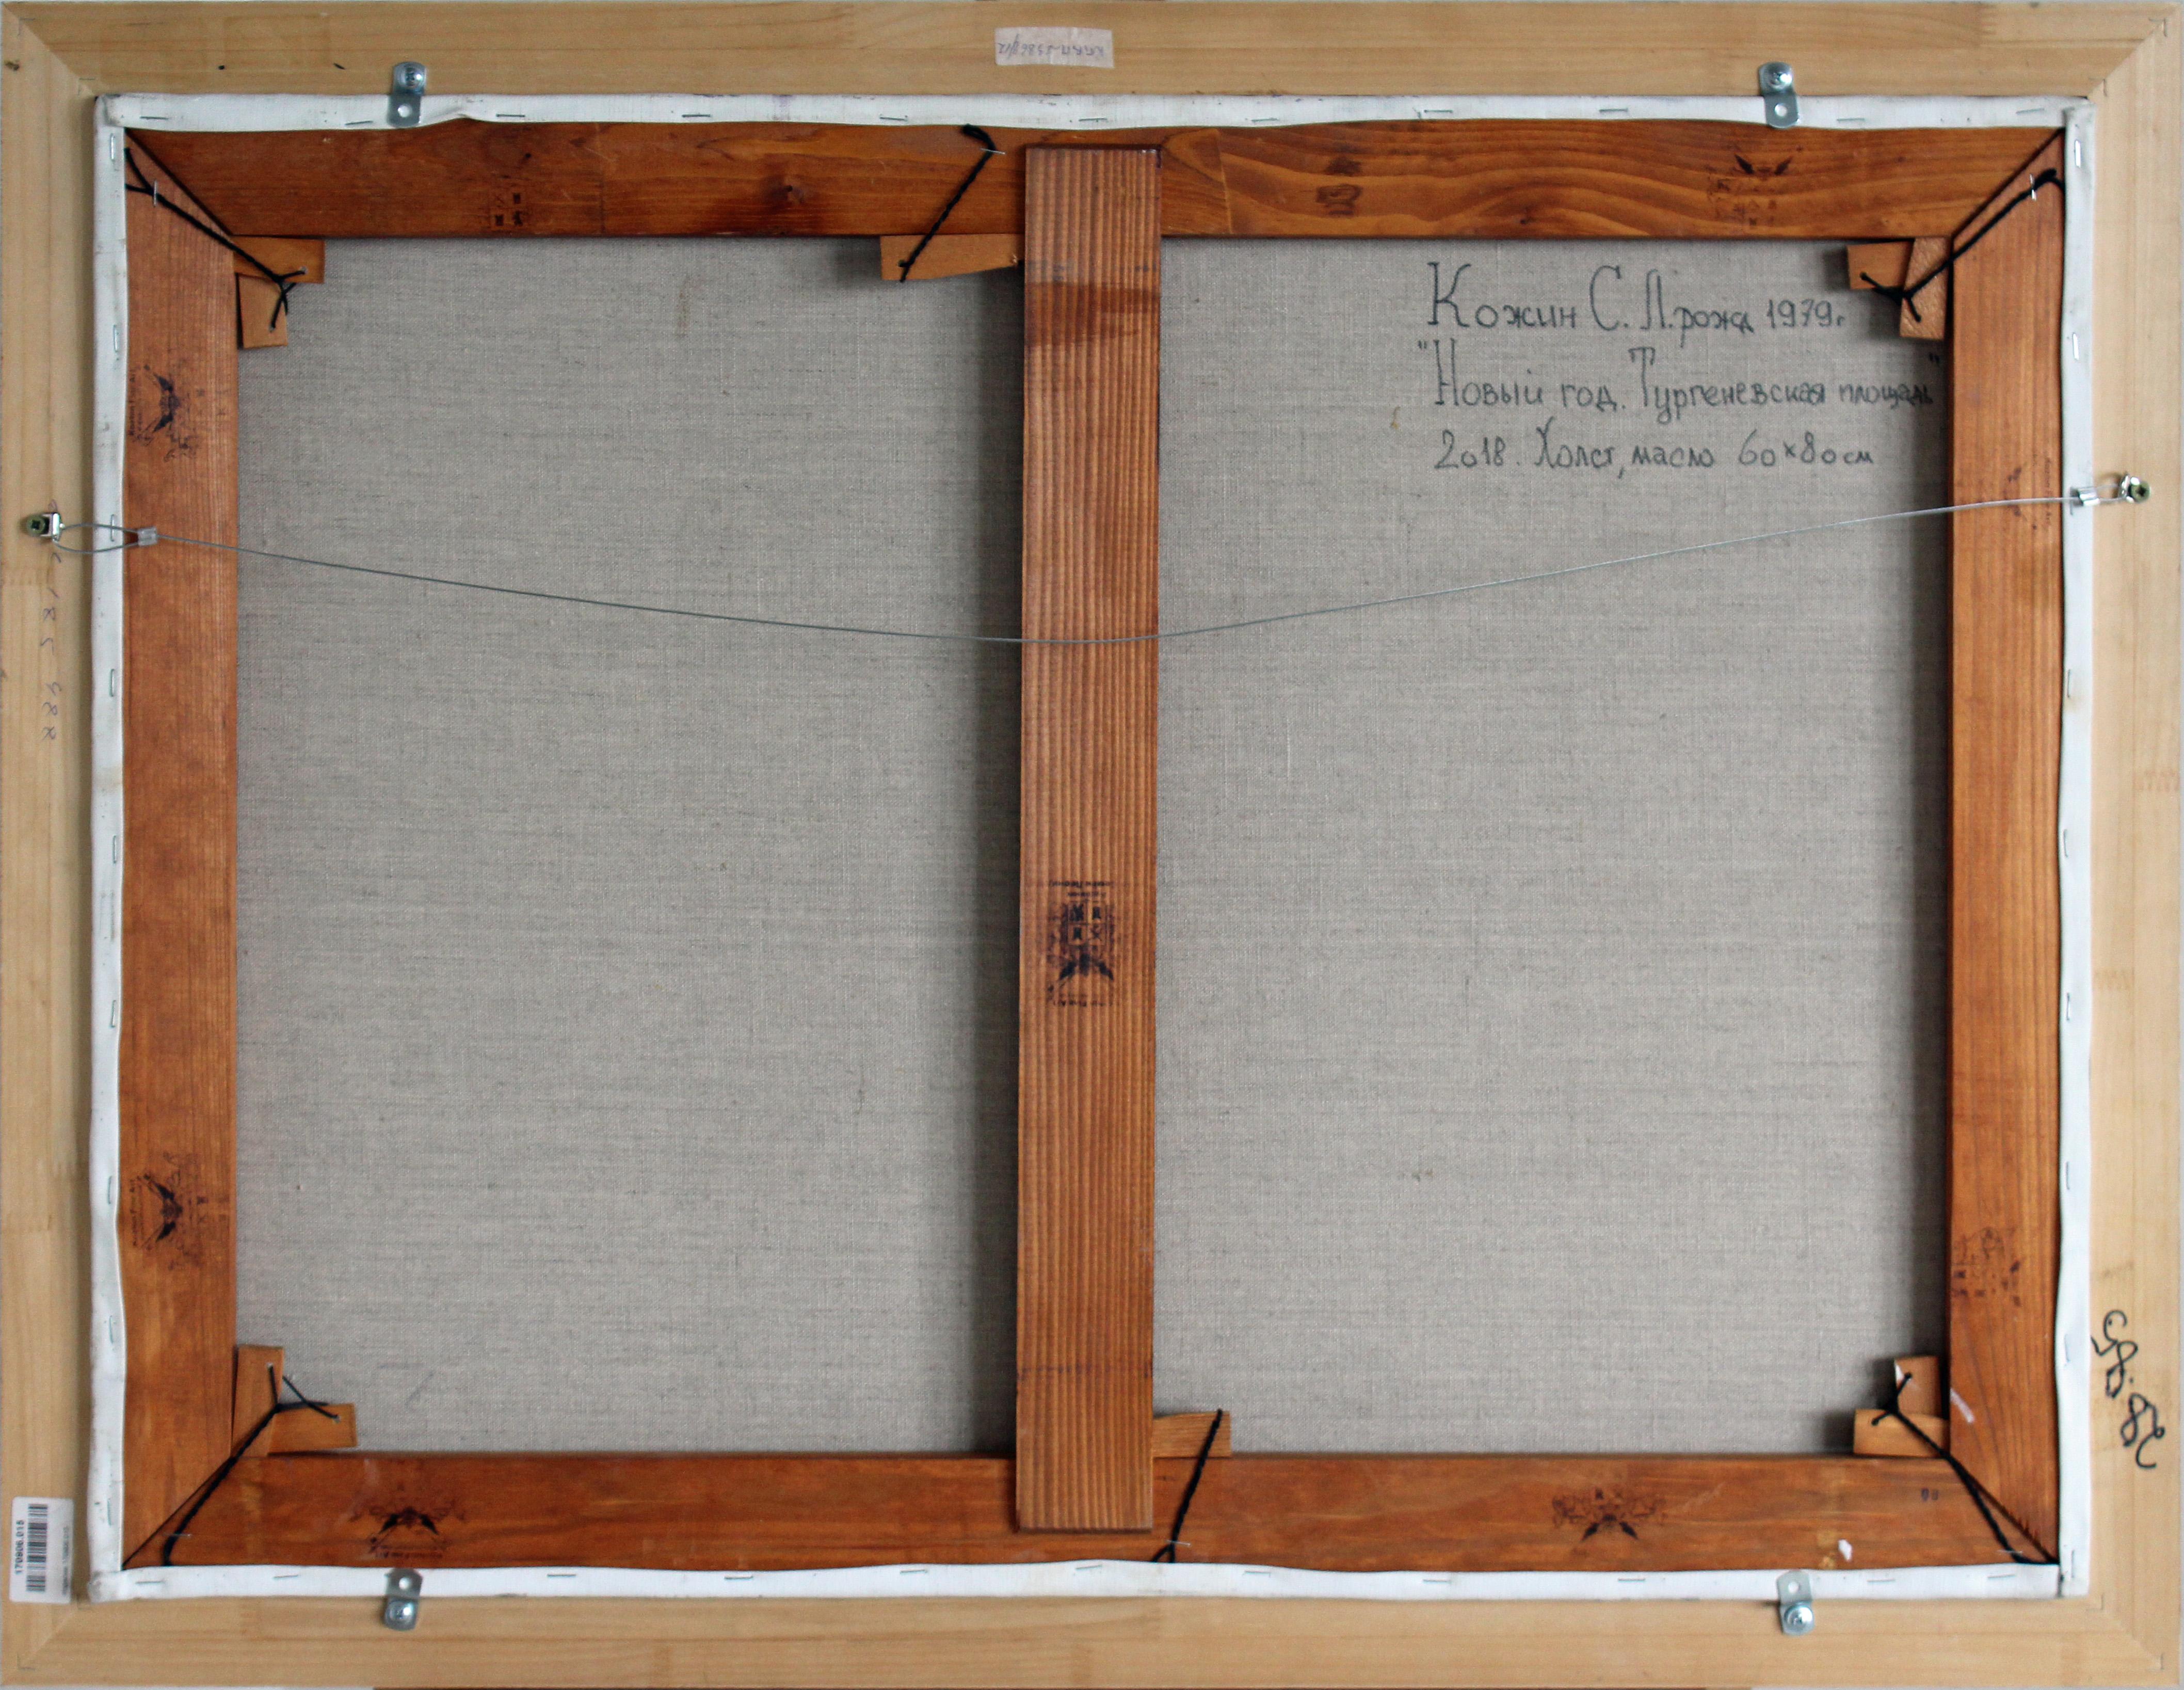 Кожин С. Л. рожд 1979г
"Новый год. Тургеневская площадь"
2018. Холст, масло 60×80см
170906.015